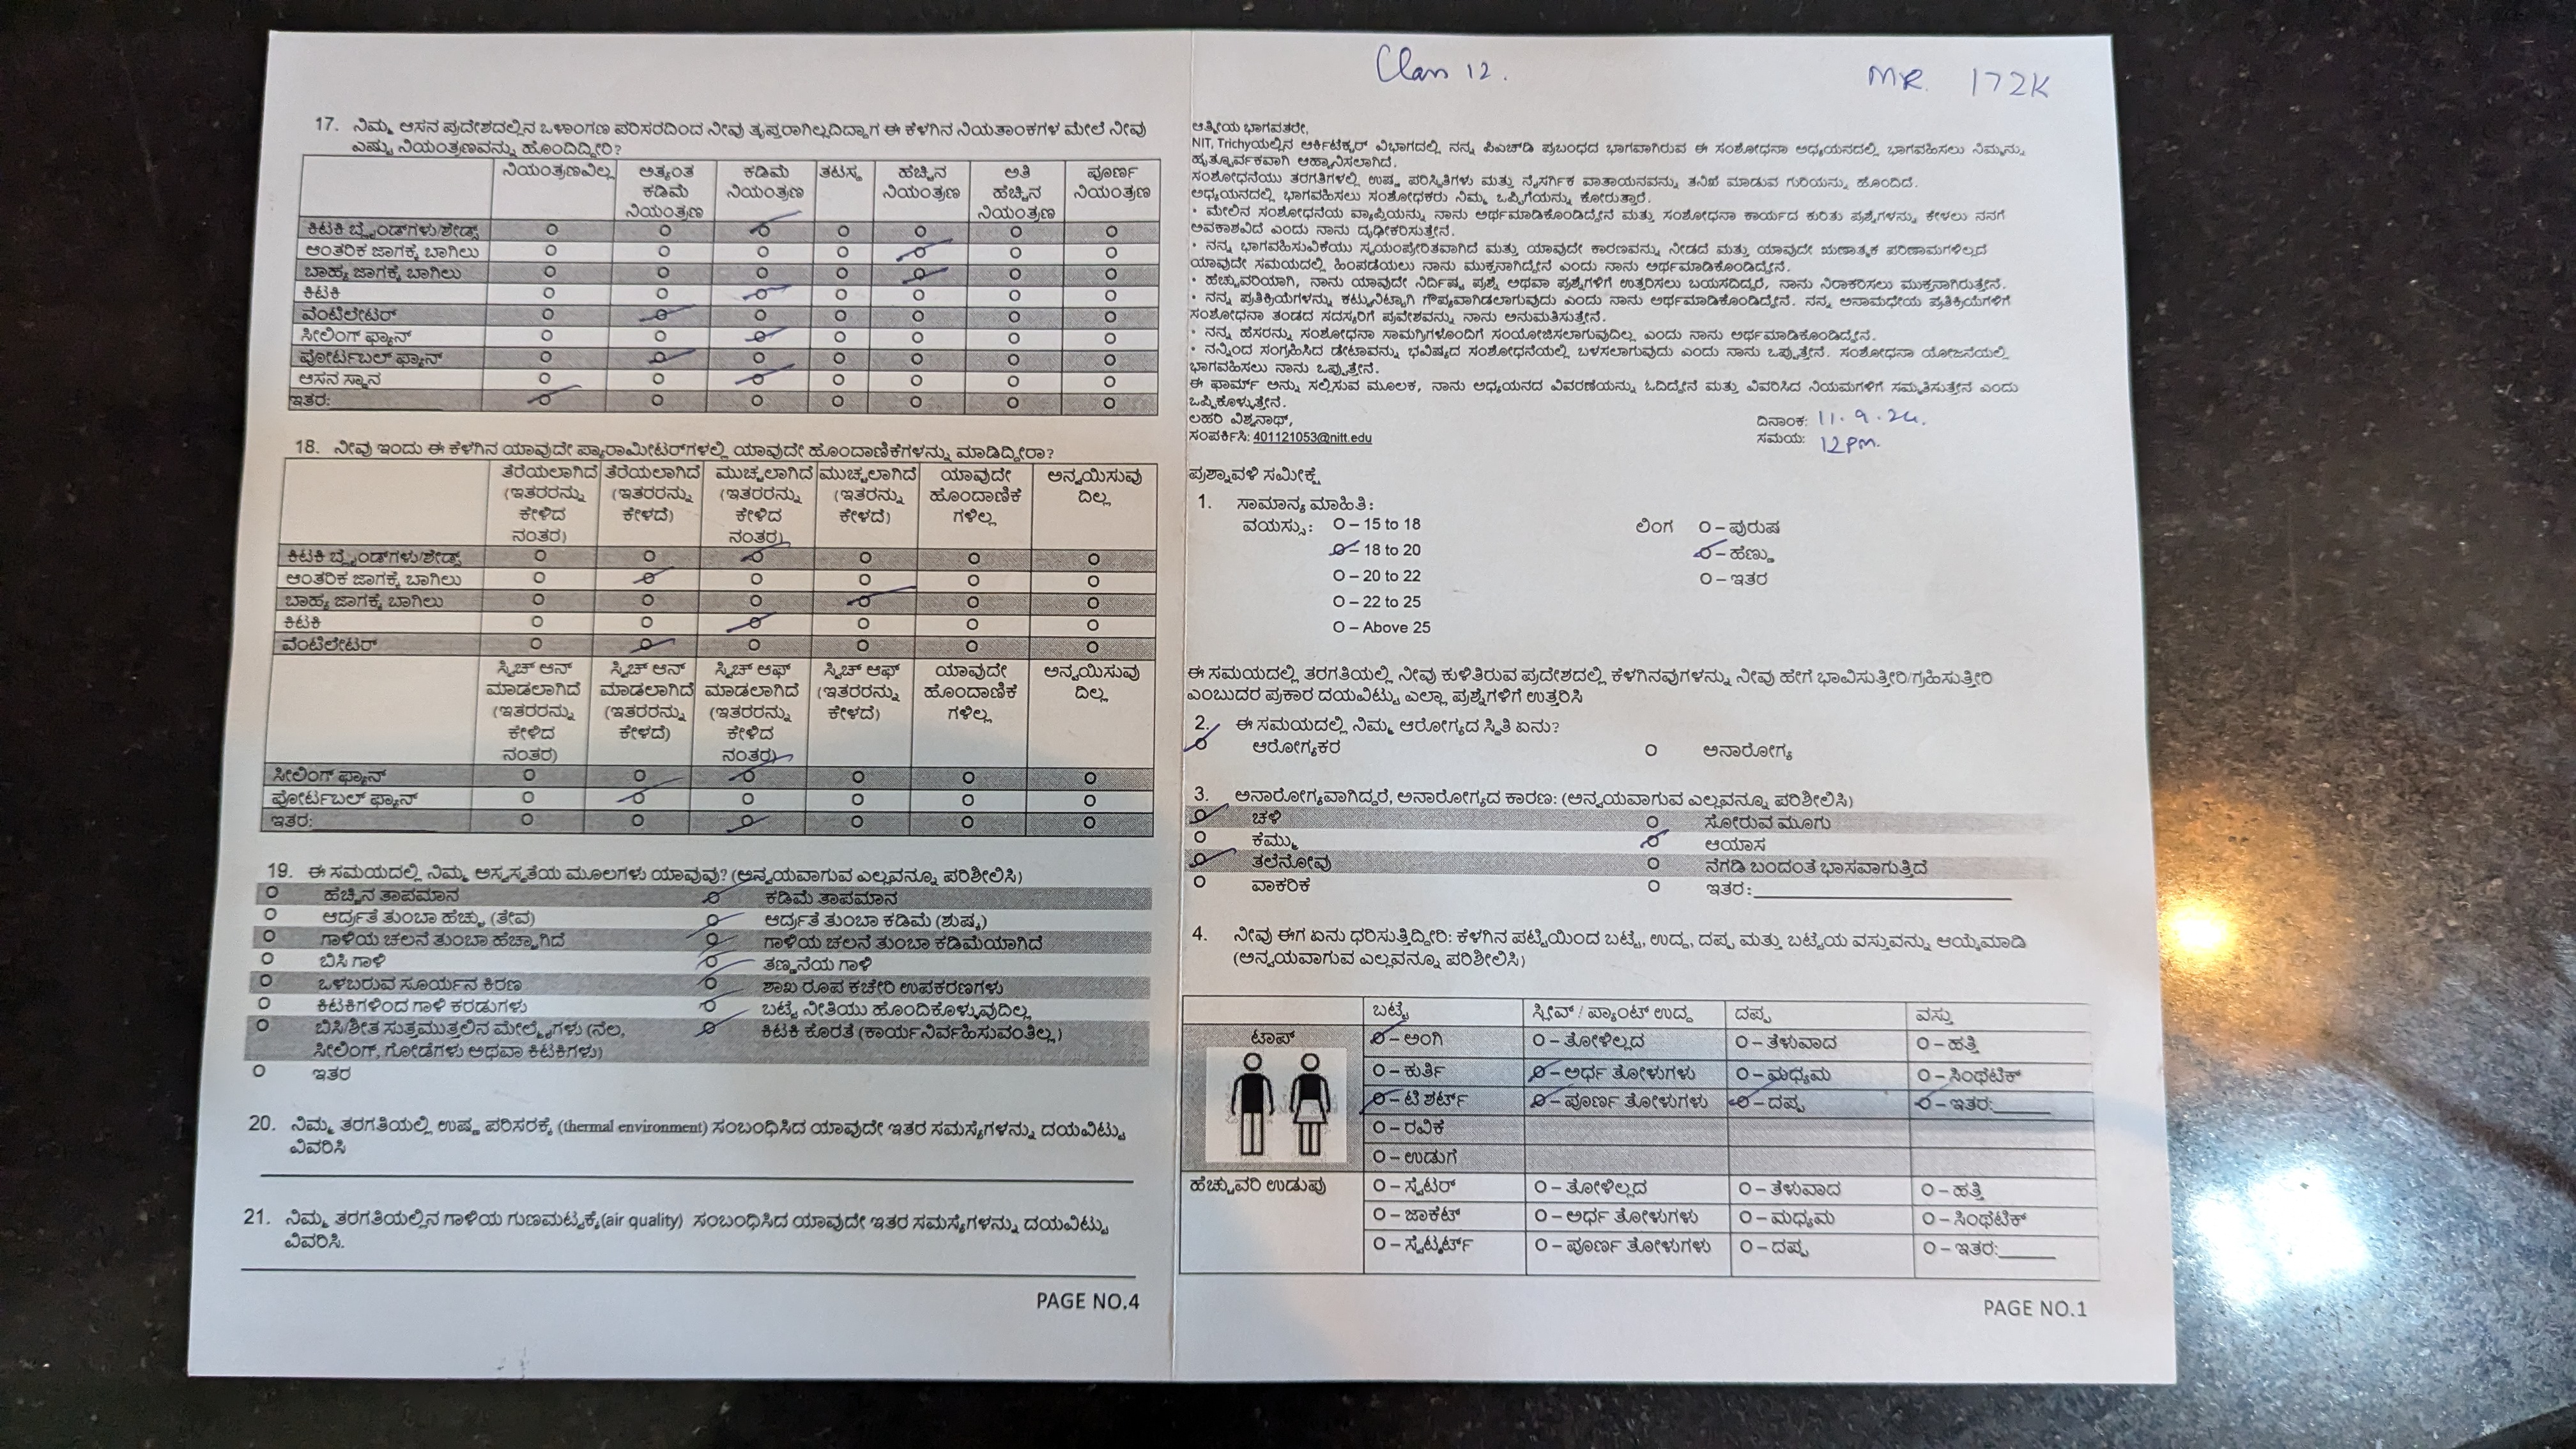 Class 12.
MR. 172K
17. ನಿಮ್ಮ ಆಸನ ಪ್ರದೇಶದಲ್ಲಿನ ಒಳಾಂಗಣ ಪರಿಸರದಿಂದ ನೀವು ತೃಪ್ತರಾಗಿಲ್ಲದಿದ್ದಾಗ ಈ ಕೆಳಗಿನ ನಿಯತಾಂಕಗಳ ಮೇಲೆ ನೀವು
ಎಷ್ಟು ನಿಯಂತ್ರಣವನ್ನು ಹೊಂದಿದ್ದೀರಿ?
ನಿಯಂತ್ರಣವಿಲ್ಲ ಅತ್ಯಂತ ಕಡಿಮೆ ನಿಯಂತ್ರಣ ಕಡಿಮೆ ನಿಯಂತ್ರಣ ತಟಸ್ಥ ಹೆಚ್ಚಿನ ನಿಯಂತ್ರಣ ಅತಿ ಹೆಚ್ಚಿನ ನಿಯಂತ್ರಣ ಪೂರ್ಣ ನಿಯಂತ್ರಣ
ಕಿಟಕಿ ಬ್ಲೈಂಡ್‌ಗಳು/ಶೇಡ್ಸ್
ಆಂತರಿಕ ಜಾಗಕ್ಕೆ ಬಾಗಿಲು
ಬಾಹ್ಯ ಜಾಗಕ್ಕೆ ಬಾಗಿಲು
ಕಿಟಕಿ
ವೆಂಟಿಲೇಟರ್
ಸೀಲಿಂಗ್ ಫ್ಯಾನ್
ಪೋರ್ಟಬಲ್ ಫ್ಯಾನ್
ಆಸನ ಸ್ಥಾನ
ಇತರ:
18. ನೀವು ಇಂದು ಈ ಕೆಳಗಿನ ಯಾವುದೇ ಪ್ಯಾರಾಮೀಟರ್‌ಗಳಲ್ಲಿ ಯಾವುದೇ ಹೊಂದಾಣಿಕೆಗಳನ್ನು ಮಾಡಿದ್ದೀರಾ?
ತೆರೆಯಲಾಗಿದೆ (ಇತರರನ್ನು ಕೇಳಿದ ನಂತರ) ತೆರೆಯಲಾಗಿದೆ (ಇತರರನ್ನು ಕೇಳದೆ) ಮುಚ್ಚಲಾಗಿದೆ (ಇತರರನ್ನು ಕೇಳಿದ ನಂತರ) ಮುಚ್ಚಲಾಗಿದೆ (ಇತರನ್ನು ಕೇಳದೆ) ಯಾವುದೇ ಹೊಂದಾಣಿಕೆ ಗಳಿಲ್ಲ ಅನ್ವಯಿಸುವು ದಿಲ್ಲ
ಕಿಟಕಿ ಬ್ಲೈಂಡ್‌ಗಳು/ಶೇಡ್ಸ್
ಆಂತರಿಕ ಜಾಗಕ್ಕೆ ಬಾಗಿಲು
ಬಾಹ್ಯ ಜಾಗಕ್ಕೆ ಬಾಗಿಲು
ಕಿಟಕಿ
ವೆಂಟಿಲೇಟರ್
ಸ್ವಿಚ್ ಆನ್ ಮಾಡಲಾಗಿದೆ (ಇತರರನ್ನು ಕೇಳಿದ ನಂತರ) ಸ್ವಿಚ್ ಆನ್ ಮಾಡಲಾಗಿದೆ (ಇತರರನ್ನು ಕೇಳದೆ) ಸ್ವಿಚ್ ಆಫ್ ಮಾಡಲಾಗಿದೆ (ಇತರರನ್ನು ಕೇಳಿದ ನಂತರ) ಸ್ವಿಚ್ ಆಫ್ (ಇತರರನ್ನು ಕೇಳದೆ) ಯಾವುದೇ ಹೊಂದಾಣಿಕೆ ಗಳಿಲ್ಲ ಅನ್ವಯಿಸುವು ದಿಲ್ಲ
ಸೀಲಿಂಗ್ ಫ್ಯಾನ್
ಪೋರ್ಟಬಲ್ ಫ್ಯಾನ್
ಇತರ:
19. ಈ ಸಮಯದಲ್ಲಿ ನಿಮ್ಮ ಅಸ್ವಸ್ಥತೆಯ ಮೂಲಗಳು ಯಾವುವು? (ಅನ್ವಯವಾಗುವ ಎಲ್ಲವನ್ನೂ ಪರಿಶೀಲಿಸಿ)
ಹೆಚ್ಚಿನ ತಾಪಮಾನ ಕಡಿಮೆ ತಾಪಮಾನ
ಆರ್ದ್ರತೆ ತುಂಬಾ ಹೆಚ್ಚು (ತೇವ) ಆರ್ದ್ರತೆ ತುಂಬಾ ಕಡಿಮೆ (ಶುಷ್ಕ)
ಗಾಳಿಯ ಚಲನೆ ತುಂಬಾ ಹೆಚ್ಚಾಗಿದೆ ಗಾಳಿಯ ಚಲನೆ ತುಂಬಾ ಕಡಿಮೆಯಾಗಿದೆ
ಬಿಸಿ ಗಾಳಿ ತಣ್ಣನೆಯ ಗಾಳಿ
ಒಳಬರುವ ಸೂರ್ಯನ ಕಿರಣ ಶಾಖ ರೂಪ ಕಚೇರಿ ಉಪಕರಣಗಳು
ಕಿಟಕಿಗಳಿಂದ ಗಾಳಿ ಕರಡುಗಳು ಬಟ್ಟೆ ನೀತಿಯು ಹೊಂದಿಕೊಳ್ಳುವುದಿಲ್ಲ
ಬಿಸಿ/ಶೀತ ಸುತ್ತಮುತ್ತಲಿನ ಮೇಲ್ಮೈಗಳು (ನೆಲ, ಕಿಟಕಿ ಕೊರತೆ (ಕಾರ್ಯನಿರ್ವಹಿಸುವಂತಿಲ್ಲ)
ಸೀಲಿಂಗ್, ಗೋಡೆಗಳು ಅಥವಾ ಕಿಟಕಿಗಳು)
ಇತರ
20. ನಿಮ್ಮ ತರಗತಿಯಲ್ಲಿ ಉಷ್ಣ ಪರಿಸರಕ್ಕೆ (thermal environment) ಸಂಬಂಧಿಸಿದ ಯಾವುದೇ ಇತರ ಸಮಸ್ಯೆಗಳನ್ನು ದಯವಿಟ್ಟು
ವಿವರಿಸಿ
21. ನಿಮ್ಮ ತರಗತಿಯಲ್ಲಿನ ಗಾಳಿಯ ಗುಣಮಟ್ಟಕ್ಕೆ(air quality) ಸಂಬಂಧಿಸಿದ ಯಾವುದೇ ಇತರ ಸಮಸ್ಯೆಗಳನ್ನು ದಯವಿಟ್ಟು
ವಿವರಿಸಿ.
PAGE NO.4
ಆತ್ಮೀಯ ಭಾಗವತರೇ,
NIT, Trichyಯಲ್ಲಿನ ಆರ್ಕಿಟೆಕ್ಚರ್ ವಿಭಾಗದಲ್ಲಿ ನನ್ನ ಪಿಎಚ್‌ಡಿ ಪ್ರಬಂಧದ ಭಾಗವಾಗಿರುವ ಈ ಸಂಶೋಧನಾ ಅಧ್ಯಯನದಲ್ಲಿ ಭಾಗವಹಿಸಲು ನಿಮ್ಮನ್ನು
ಹೃತ್ಪೂರ್ವಕವಾಗಿ ಆಹ್ವಾನಿಸಲಾಗಿದೆ.
ಸಂಶೋಧನೆಯು ತರಗತಿಗಳಲ್ಲಿ ಉಷ್ಣ ಪರಿಸ್ಥಿತಿಗಳು ಮತ್ತು ನೈಸರ್ಗಿಕ ವಾತಾಯನವನ್ನು ತನಿಖೆ ಮಾಡುವ ಗುರಿಯನ್ನು ಹೊಂದಿದೆ.
ಅಧ್ಯಯನದಲ್ಲಿ ಭಾಗವಹಿಸಲು ಸಂಶೋಧಕರು ನಿಮ್ಮ ಒಪ್ಪಿಗೆಯನ್ನು ಕೋರುತ್ತಾರೆ.
• ಮೇಲಿನ ಸಂಶೋಧನೆಯ ವ್ಯಾಪ್ತಿಯನ್ನು ನಾನು ಅರ್ಥಮಾಡಿಕೊಂಡಿದ್ದೇನೆ ಮತ್ತು ಸಂಶೋಧನಾ ಕಾರ್ಯದ ಕುರಿತು ಪ್ರಶ್ನೆಗಳನ್ನು ಕೇಳಲು ನನಗೆ
ಅವಕಾಶವಿದೆ ಎಂದು ನಾನು ದೃಢೀಕರಿಸುತ್ತೇನೆ.
• ನನ್ನ ಭಾಗವಹಿಸುವಿಕೆಯು ಸ್ವಯಂಪ್ರೇರಿತವಾಗಿದೆ ಮತ್ತು ಯಾವುದೇ ಕಾರಣವನ್ನು ನೀಡದೆ ಮತ್ತು ಯಾವುದೇ ಋಣಾತ್ಮಕ ಪರಿಣಾಮಗಳಿಲ್ಲದೆ
ಯಾವುದೇ ಸಮಯದಲ್ಲಿ ಹಿಂಪಡೆಯಲು ನಾನು ಮುಕ್ತನಾಗಿದ್ದೇನೆ ಎಂದು ನಾನು ಅರ್ಥಮಾಡಿಕೊಂಡಿದ್ದೇನೆ.
• ಹೆಚ್ಚುವರಿಯಾಗಿ, ನಾನು ಯಾವುದೇ ನಿರ್ದಿಷ್ಟ ಪ್ರಶ್ನೆ ಅಥವಾ ಪ್ರಶ್ನೆಗಳಿಗೆ ಉತ್ತರಿಸಲು ಬಯಸದಿದ್ದರೆ, ನಾನು ನಿರಾಕರಿಸಲು ಮುಕ್ತನಾಗಿರುತ್ತೇನೆ.
• ನನ್ನ ಪ್ರತಿಕ್ರಿಯೆಗಳನ್ನು ಕಟ್ಟುನಿಟ್ಟಾಗಿ ಗೌಪ್ಯವಾಗಿಡಲಾಗುವುದು ಎಂದು ನಾನು ಅರ್ಥಮಾಡಿಕೊಂಡಿದ್ದೇನೆ. ನನ್ನ ಅನಾಮಧೇಯ ಪ್ರತಿಕ್ರಿಯೆಗಳಿಗೆ
ಸಂಶೋಧನಾ ತಂಡದ ಸದಸ್ಯರಿಗೆ ಪ್ರವೇಶವನ್ನು ನಾನು ಅನುಮತಿಸುತ್ತೇನೆ.
• ನನ್ನ ಹೆಸರನ್ನು ಸಂಶೋಧನಾ ಸಾಮಗ್ರಿಗಳೊಂದಿಗೆ ಸಂಯೋಜಿಸಲಾಗುವುದಿಲ್ಲ ಎಂದು ನಾನು ಅರ್ಥಮಾಡಿಕೊಂಡಿದ್ದೇನೆ.
• ನನ್ನಿಂದ ಸಂಗ್ರಹಿಸಿದ ಡೇಟಾವನ್ನು ಭವಿಷ್ಯದ ಸಂಶೋಧನೆಯಲ್ಲಿ ಬಳಸಲಾಗುವುದು ಎಂದು ನಾನು ಒಪ್ಪುತ್ತೇನೆ. ಸಂಶೋಧನಾ ಯೋಜನೆಯಲ್ಲಿ
ಭಾಗವಹಿಸಲು ನಾನು ಒಪ್ಪುತ್ತೇನೆ.
ಈ ಫಾರ್ಮ್ ಅನ್ನು ಸಲ್ಲಿಸುವ ಮೂಲಕ, ನಾನು ಅಧ್ಯಯನದ ವಿವರಣೆಯನ್ನು ಓದಿದ್ದೇನೆ ಮತ್ತು ವಿವರಿಸಿದ ನಿಯಮಗಳಿಗೆ ಸಮ್ಮತಿಸುತ್ತೇನೆ ಎಂದು
ಒಪ್ಪಿಕೊಳ್ಳುತ್ತೇನೆ.
ಲಹರಿ ವಿಶ್ವನಾಥ್, ದಿನಾಂಕ: 11.9.24.
ಸಂಪರ್ಕಿಸಿ: 401121053@nitt.edu ಸಮಯ: 12pm.
ಪ್ರಶ್ನಾವಳಿ ಸಮೀಕ್ಷೆ
1. ಸಾಮಾನ್ಯ ಮಾಹಿತಿ:
ವಯಸ್ಸು: O – 15 to 18 ಲಿಂಗ O – ಪುರುಷ
O – 18 to 20 O – ಹೆಣ್ಣು
O – 20 to 22 O – ಇತರ
O – 22 to 25
O – Above 25
ಈ ಸಮಯದಲ್ಲಿ ತರಗತಿಯಲ್ಲಿ ನೀವು ಕುಳಿತಿರುವ ಪ್ರದೇಶದಲ್ಲಿ ಕೆಳಗಿನವುಗಳನ್ನು ನೀವು ಹೇಗೆ ಭಾವಿಸುತ್ತೀರಿ/ಗ್ರಹಿಸುತ್ತೀರಿ
ಎಂಬುದರ ಪ್ರಕಾರ ದಯವಿಟ್ಟು ಎಲ್ಲಾ ಪ್ರಶ್ನೆಗಳಿಗೆ ಉತ್ತರಿಸಿ
2. ಈ ಸಮಯದಲ್ಲಿ ನಿಮ್ಮ ಆರೋಗ್ಯದ ಸ್ಥಿತಿ ಏನು?
ಆರೋಗ್ಯಕರ ಅನಾರೋಗ್ಯ
3. ಅನಾರೋಗ್ಯವಾಗಿದ್ದರೆ, ಅನಾರೋಗ್ಯದ ಕಾರಣ: (ಅನ್ವಯವಾಗುವ ಎಲ್ಲವನ್ನೂ ಪರಿಶೀಲಿಸಿ)
ಚಳಿ ಸೋರುವ ಮೂಗು
ಕೆಮ್ಮು ಆಯಾಸ
ತಲೆನೋವು ನೆಗಡಿ ಬಂದಂತೆ ಭಾಸವಾಗುತ್ತಿದೆ
ವಾಕರಿಕೆ ಇತರ:
4. ನೀವು ಈಗ ಏನು ಧರಿಸುತ್ತಿದ್ದೀರಿ: ಕೆಳಗಿನ ಪಟ್ಟಿಯಿಂದ ಬಟ್ಟೆ, ಉದ್ದ, ದಪ್ಪ ಮತ್ತು ಬಟ್ಟೆಯ ವಸ್ತುವನ್ನು ಆಯ್ಕೆಮಾಡಿ
(ಅನ್ವಯವಾಗುವ ಎಲ್ಲವನ್ನೂ ಪರಿಶೀಲಿಸಿ)
ಬಟ್ಟೆ ಸ್ಲೀವ್ / ಪ್ಯಾಂಟ್ ಉದ್ದ ದಪ್ಪ ವಸ್ತು
ಟಾಪ್ O – ಅಂಗಿ O – ತೋಳಿಲ್ಲದ O – ತೆಳುವಾದ O – ಹತ್ತಿ
O – ಕುರ್ತಿ O – ಅರ್ಧ ತೋಳುಗಳು O – ಮಧ್ಯಮ O – ಸಿಂಥೆಟಿಕ್
O – ಟಿ ಶರ್ಟ್ O – ಪೂರ್ಣ ತೋಳುಗಳು O – ದಪ್ಪ O – ಇತರ:
O – ರವಿಕೆ
O – ಉಡುಗೆ
ಹೆಚ್ಚುವರಿ ಉಡುಪು O – ಸ್ವೆಟರ್ O – ತೋಳಿಲ್ಲದ O – ತೆಳುವಾದ O – ಹತ್ತಿ
O – ಜಾಕೆಟ್ O – ಅರ್ಧ ತೋಳುಗಳು O – ಮಧ್ಯಮ O – ಸಿಂಥೆಟಿಕ್
O – ಸ್ವೆಟ್ಶರ್ಟ್ O – ಪೂರ್ಣ ತೋಳುಗಳು O – ದಪ್ಪ O – ಇತರ:
PAGE NO.1